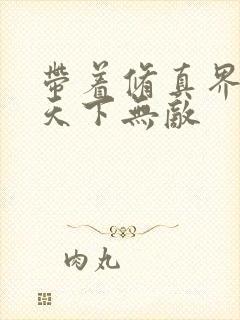 帶着脩真界
天下無敵
肉丸